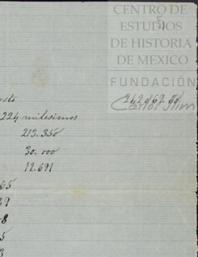 CENTRO DE
ESTUDIOS
DE HISTORIA
DE MEXICO
FUNDACIÓN
Carlos Slim
224 milesimos
213.350
30.000
12.671
65
29
8
5
3